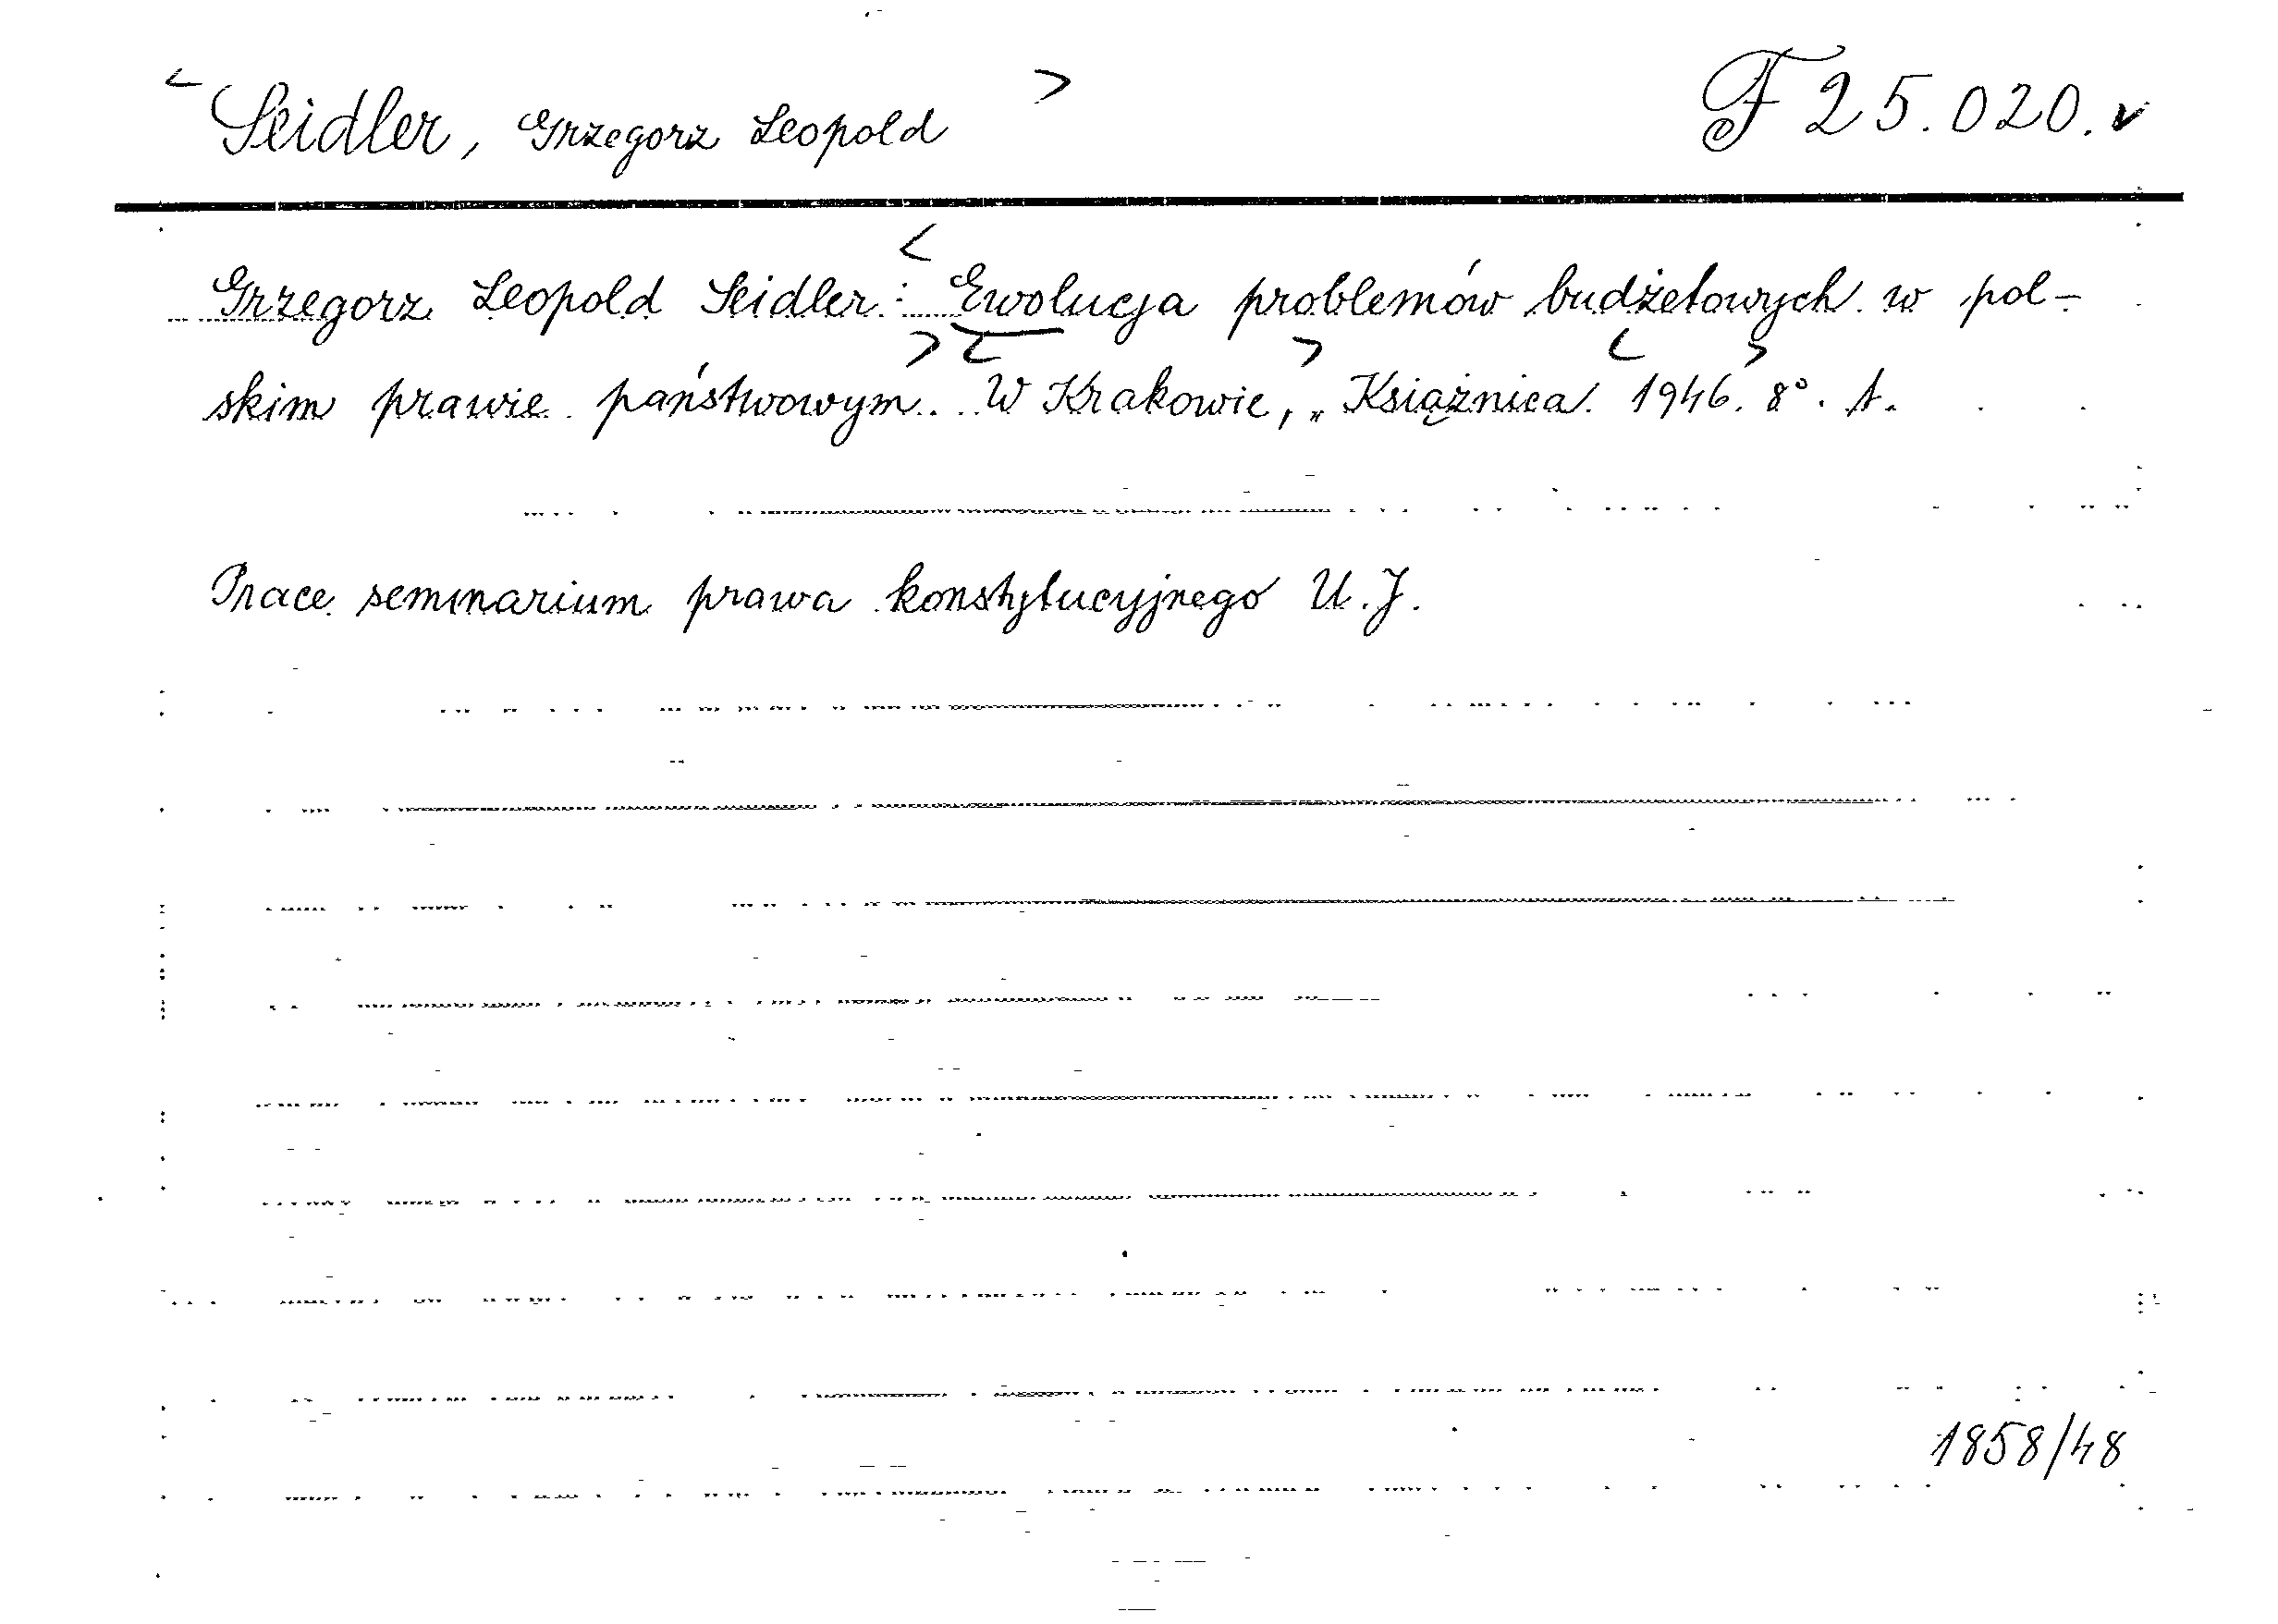 <Seidler, Grzegorz Leopold> F 25.020. v
Grzegorz Leopold Seidler: <Ewolucja problemów budżetowych w pol-
skim prawie państwowym.> <W Krakowie, „Książnica> <1946.> 8°. s.
Prace seminarium prawa konstytucyjnego U.J.
1858/48